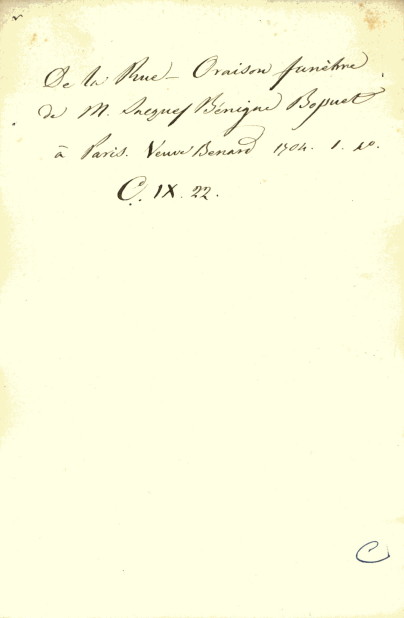 De la Rue - Oraison funèbre
de M. Jacques Bénigne Bossuet
à Paris. Veuve Benard 1704. 1. 4o.
C. IX. 22.
C